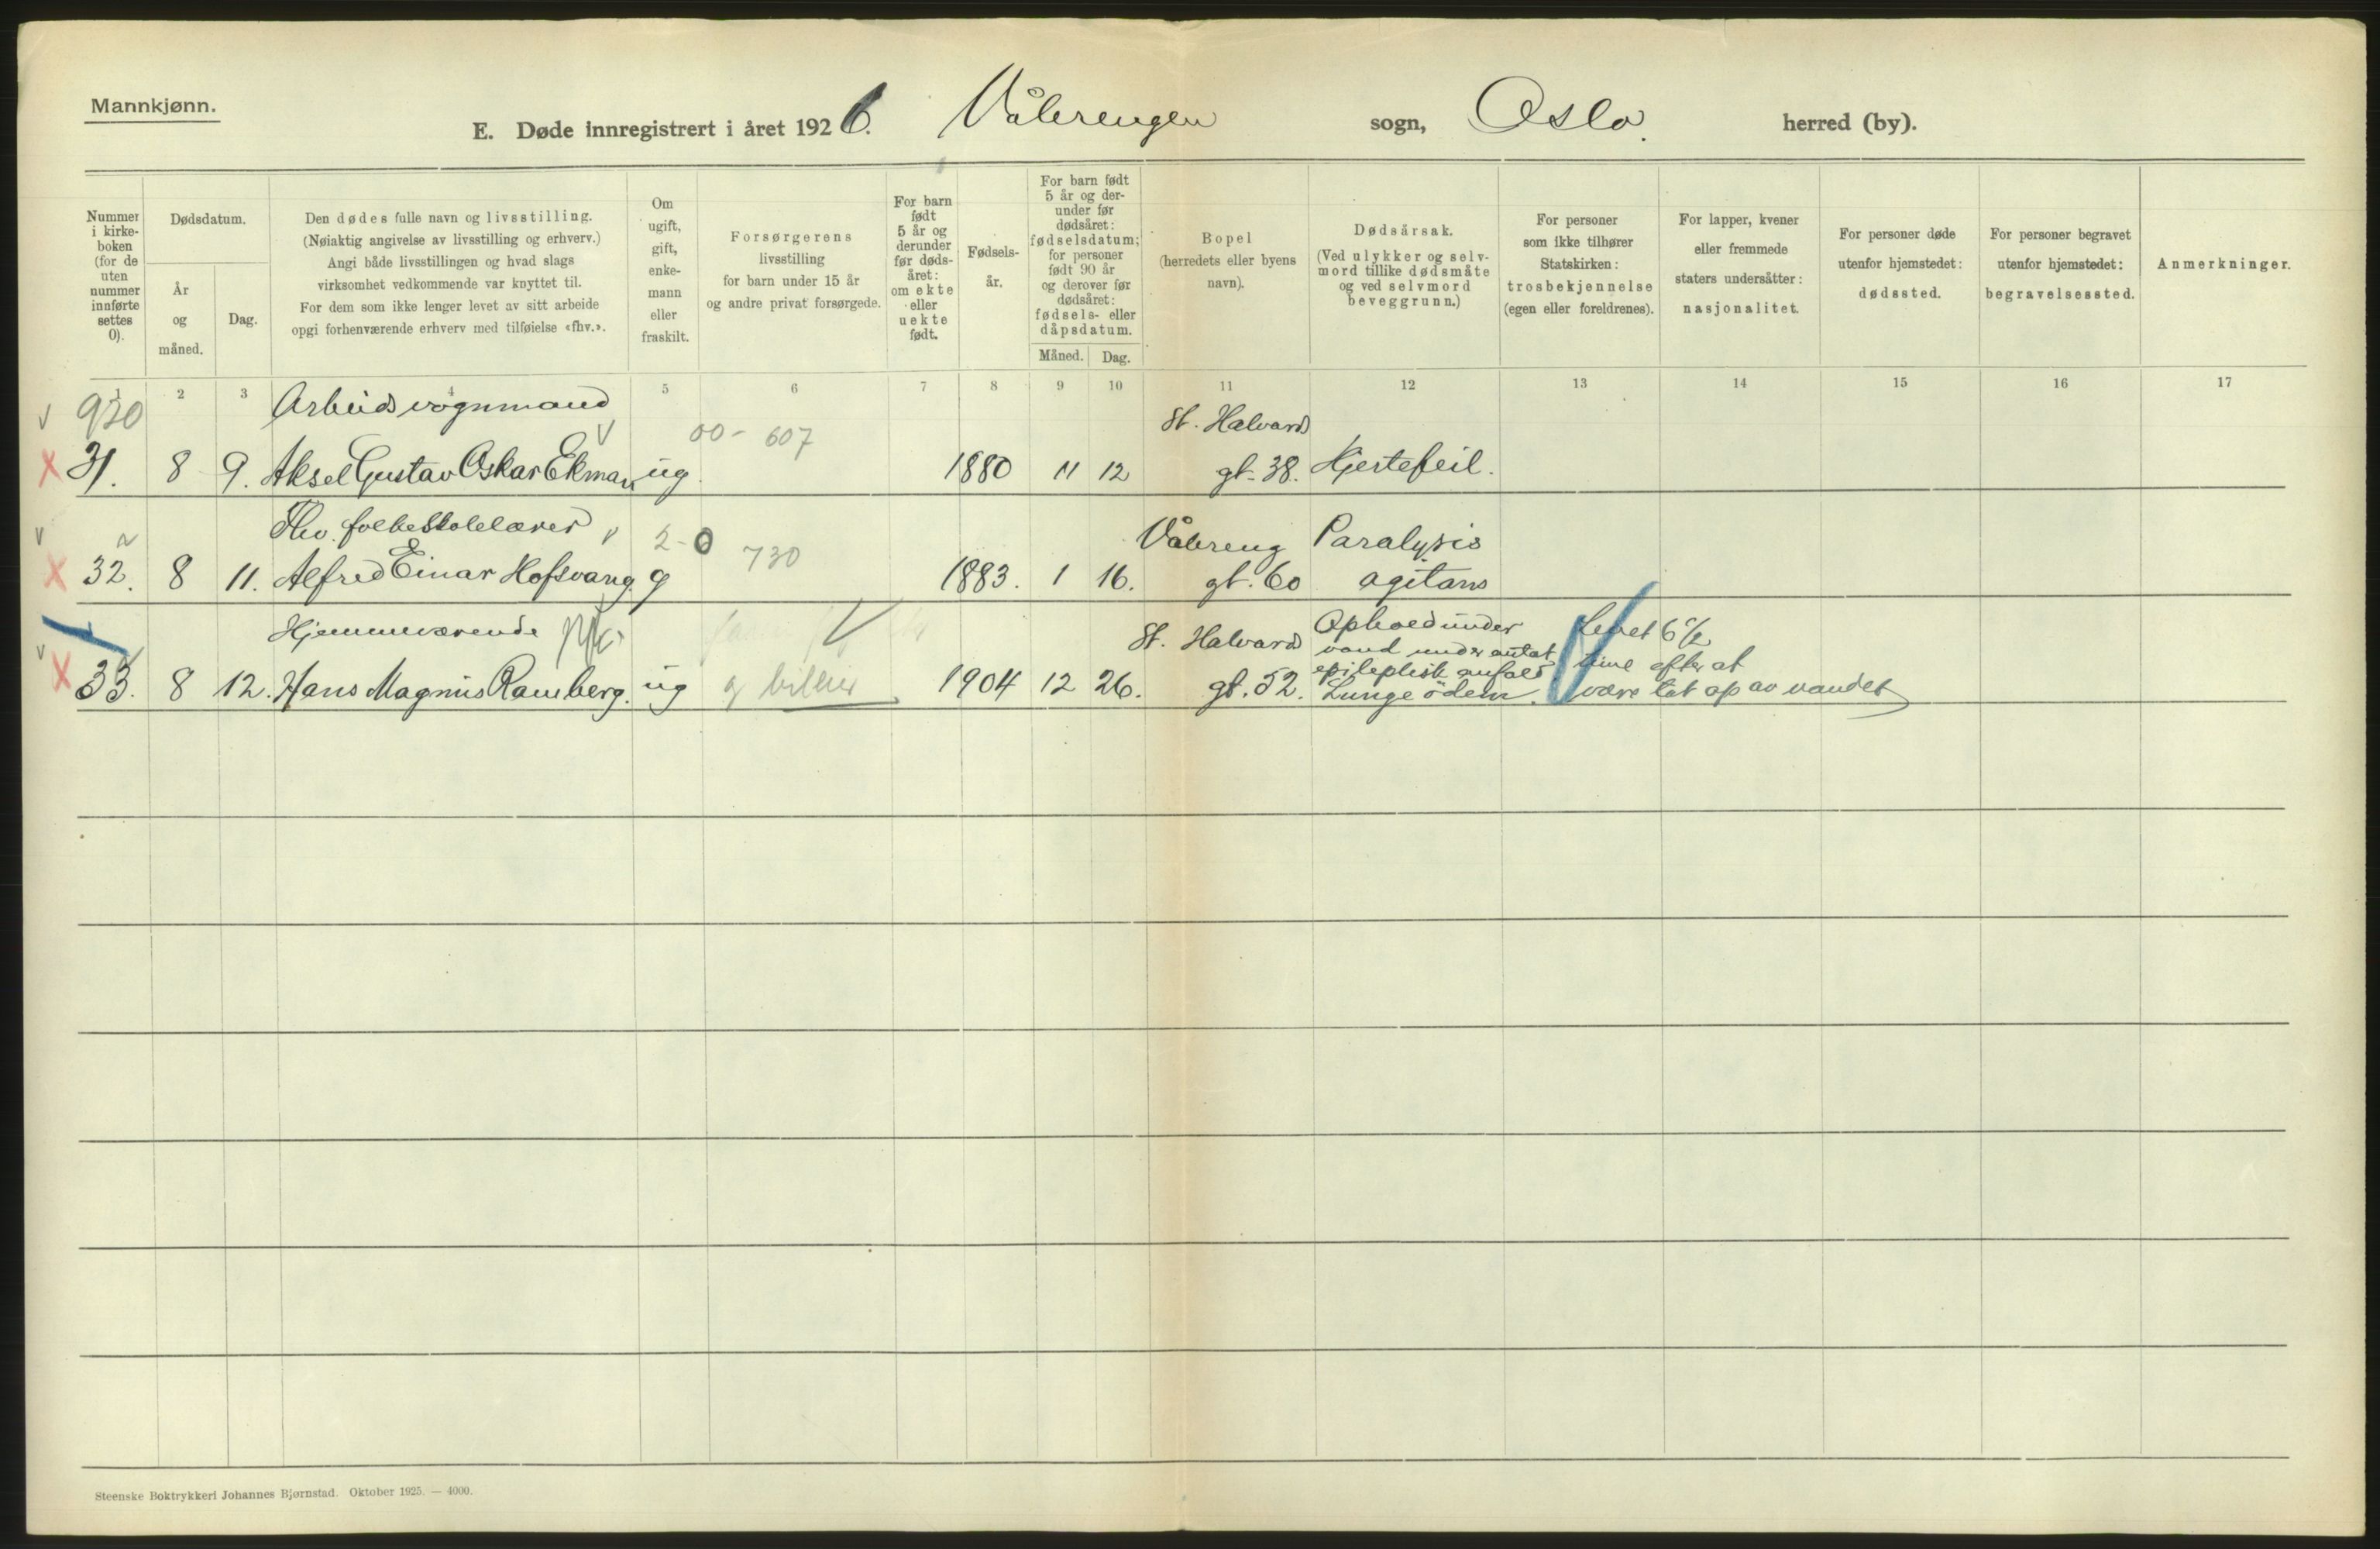 Mannkjønn.
E. Døde innregistrert i året 1926. Vålerengen sogn, Oslo. herred (by).
Nummer i kirke- boken (for de uten nummer innførte settes 0).
Dødsdatum.
År og måned.
Dag.
Den dødes fulle navn og livsstilling.
(Nøiaktig angivelse av livsstilling og erhverv.)
Angi både livsstillingen og hvad slags
virksomhet vedkommende var knyttet til.
For dem som ikke lenger levet av sitt arbeide
opgi forhenværende erhverv med tilføielse «fhv.».
Om ugift, gift, enke- mann eller fraskilt.
Forsørgerens
livsstilling
for barn under 15 år
og andre privat forsørgede.
For barn født 5 år og derunder før døds- året: om ekte eller uekte født.
Fødsels- år.
For barn født 5 år og der- under før dødsåret: fødselsdatum; for personer født 90 år og derover før dødsåret: fødsels- eller dåpsdatum.
Måned. Dag.
Bopel
(herredets eller byens
navn).
Dødsårsak.
(Ved ulykker og selv-
mord tillike dødsmåte
og ved selvmord
beveggrunn.)
For personer
som ikke tilhører
Statskirken:
trosbekjennelse
(egen eller foreldrenes).
For lapper, kvener
eller fremmede
staters undersåtter:
nasjonalitet.
For personer døde
utenfor hjemstedet:
dødssted.
For personer begravet
utenfor hjemstedet:
begravelsessted.
Anmerkninger.
1 2 3 4 5 6 7 8 9 10 11 12 13 14 15 16 17
930 Arbeidsvognmand 00- 607 St. Halvards
31. 8 9. Aksel Gustav Oskar Ekman ug. 1880 11 12 gt. 38. Hjertefeil.
Fhv. folkeskolelærer 2-0 730 Vålereng Paralysis
32. 8 11. Alfred Einar Hofsvang. g 1883. 1 16. gt. 60 agitans
Hjemmeværende St. Halvards Ophold under Levet 6 1/2
vand under antat time efter at
epileptisk anfald
33. 8 12. Hans Magnus Ramberg. ug 1904 12 26. gt. 52. Lunge ödem. være tat op av vandet
Steenske Boktrykkeri Johannes Bjørnstad. Oktober 1925. — 4000.